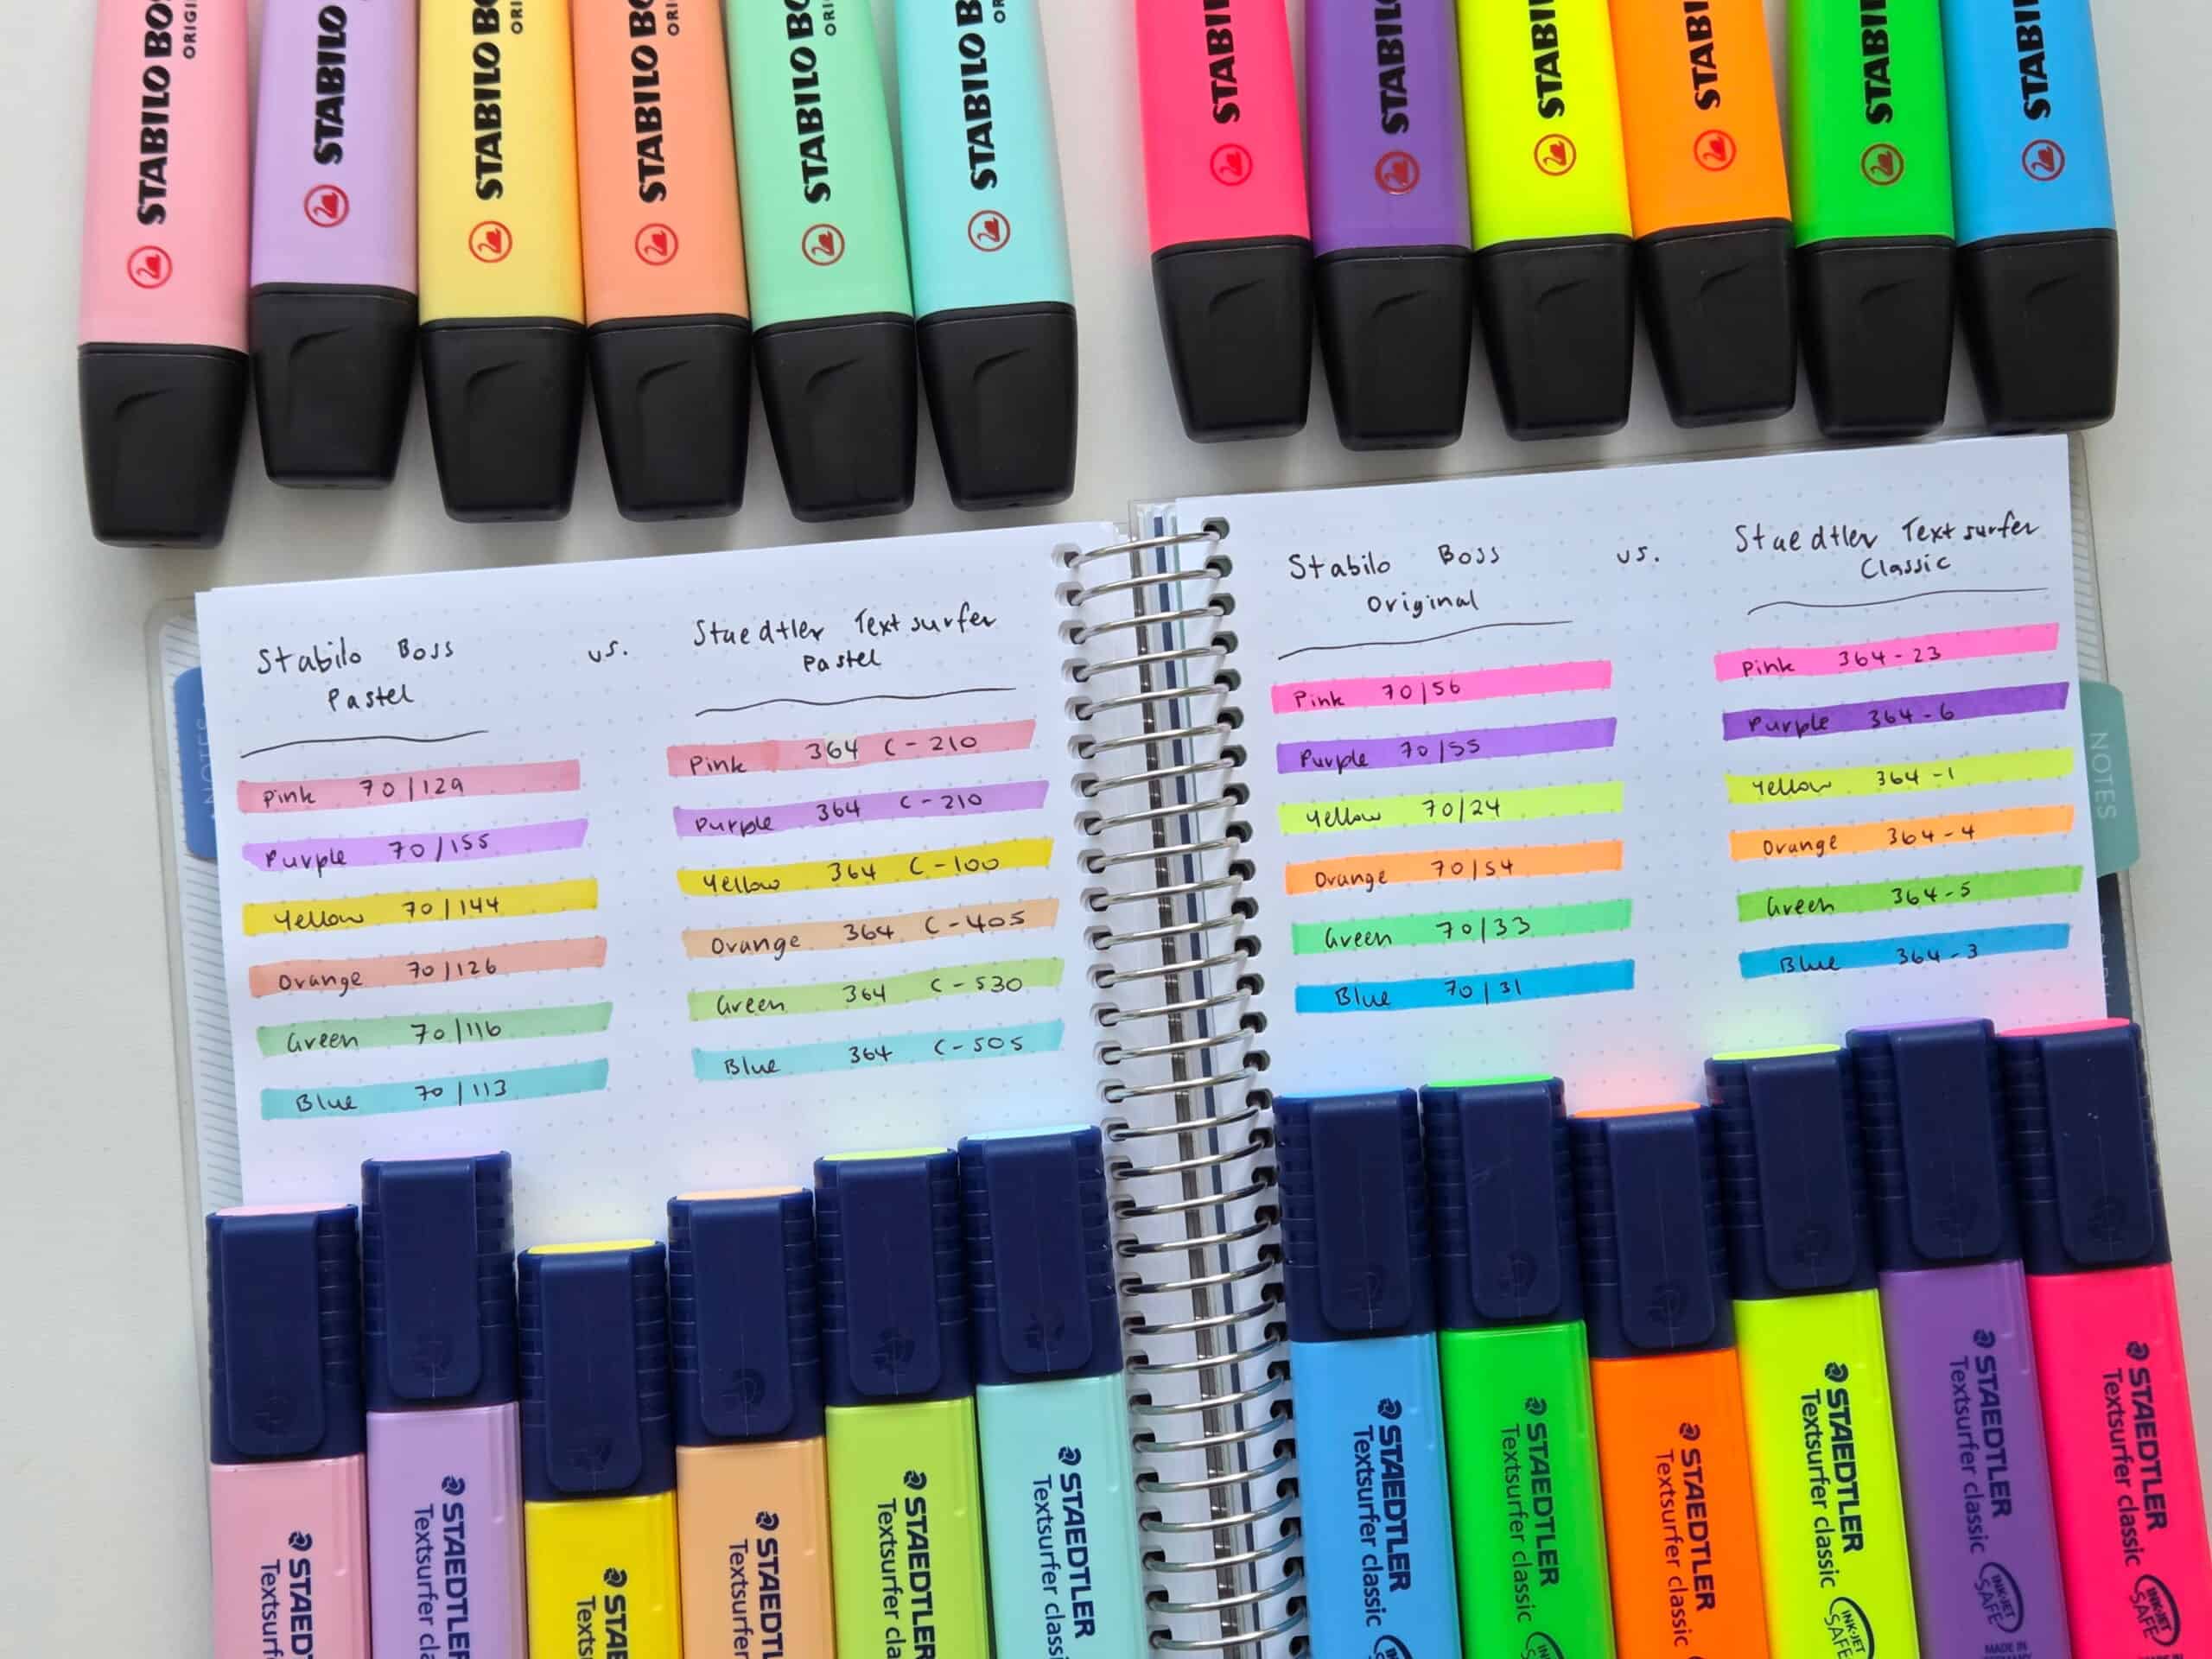 STABILO BO
ORIGI
STABILO
STABILO BO
ORI
STABILO BO
ORI
STABILO BO
ORI
STABILO B
OR
STABI
STABIL
STABI
STABI
STABI
STABI
Stabilo Boss
Pastel
vs.
Staedtler Textsurfer
Pastel
Pink 70/129
Purple 70/155
Yellow 70/144
Orange 70/126
Green 70/116
Blue 70/113
Pink 364 C-210
Purple 364 C-210
Yellow 364 C-100
Orange 364 C-405
Green 364 C-530
Blue 364 C-505
Stabilo Boss
Original
vs.
Staedtler Textsurfer
Classic
Pink 70/56
Purple 70/55
Yellow 70/24
Orange 70/54
Green 70/33
Blue 70/31
Pink 364-23
Purple 364-6
Yellow 364-1
Orange 364-4
Green 364-5
Blue 364-3
NOTES
NOTES
STAED
Textsurf
STAEDTLER
Textsurfer cla
STAE
Texts
STAEDTL
Textsurfer
STAEDTLER
Textsurfer cla
STAEDTLER
Textsurfer classi
STAEDTLER
Textsurfer classic
STAEDTLER
Textsurfer classic
STAEDTLER
Textsurfer classic
STAEDTLER
Textsurfer classic
INK-JET
SAFE
STAEDTLER
Textsurfer classic
INK-JET
SAFE
MADE IN
STAEDTLER
Textsurfer classic
INK-JET
SAFE